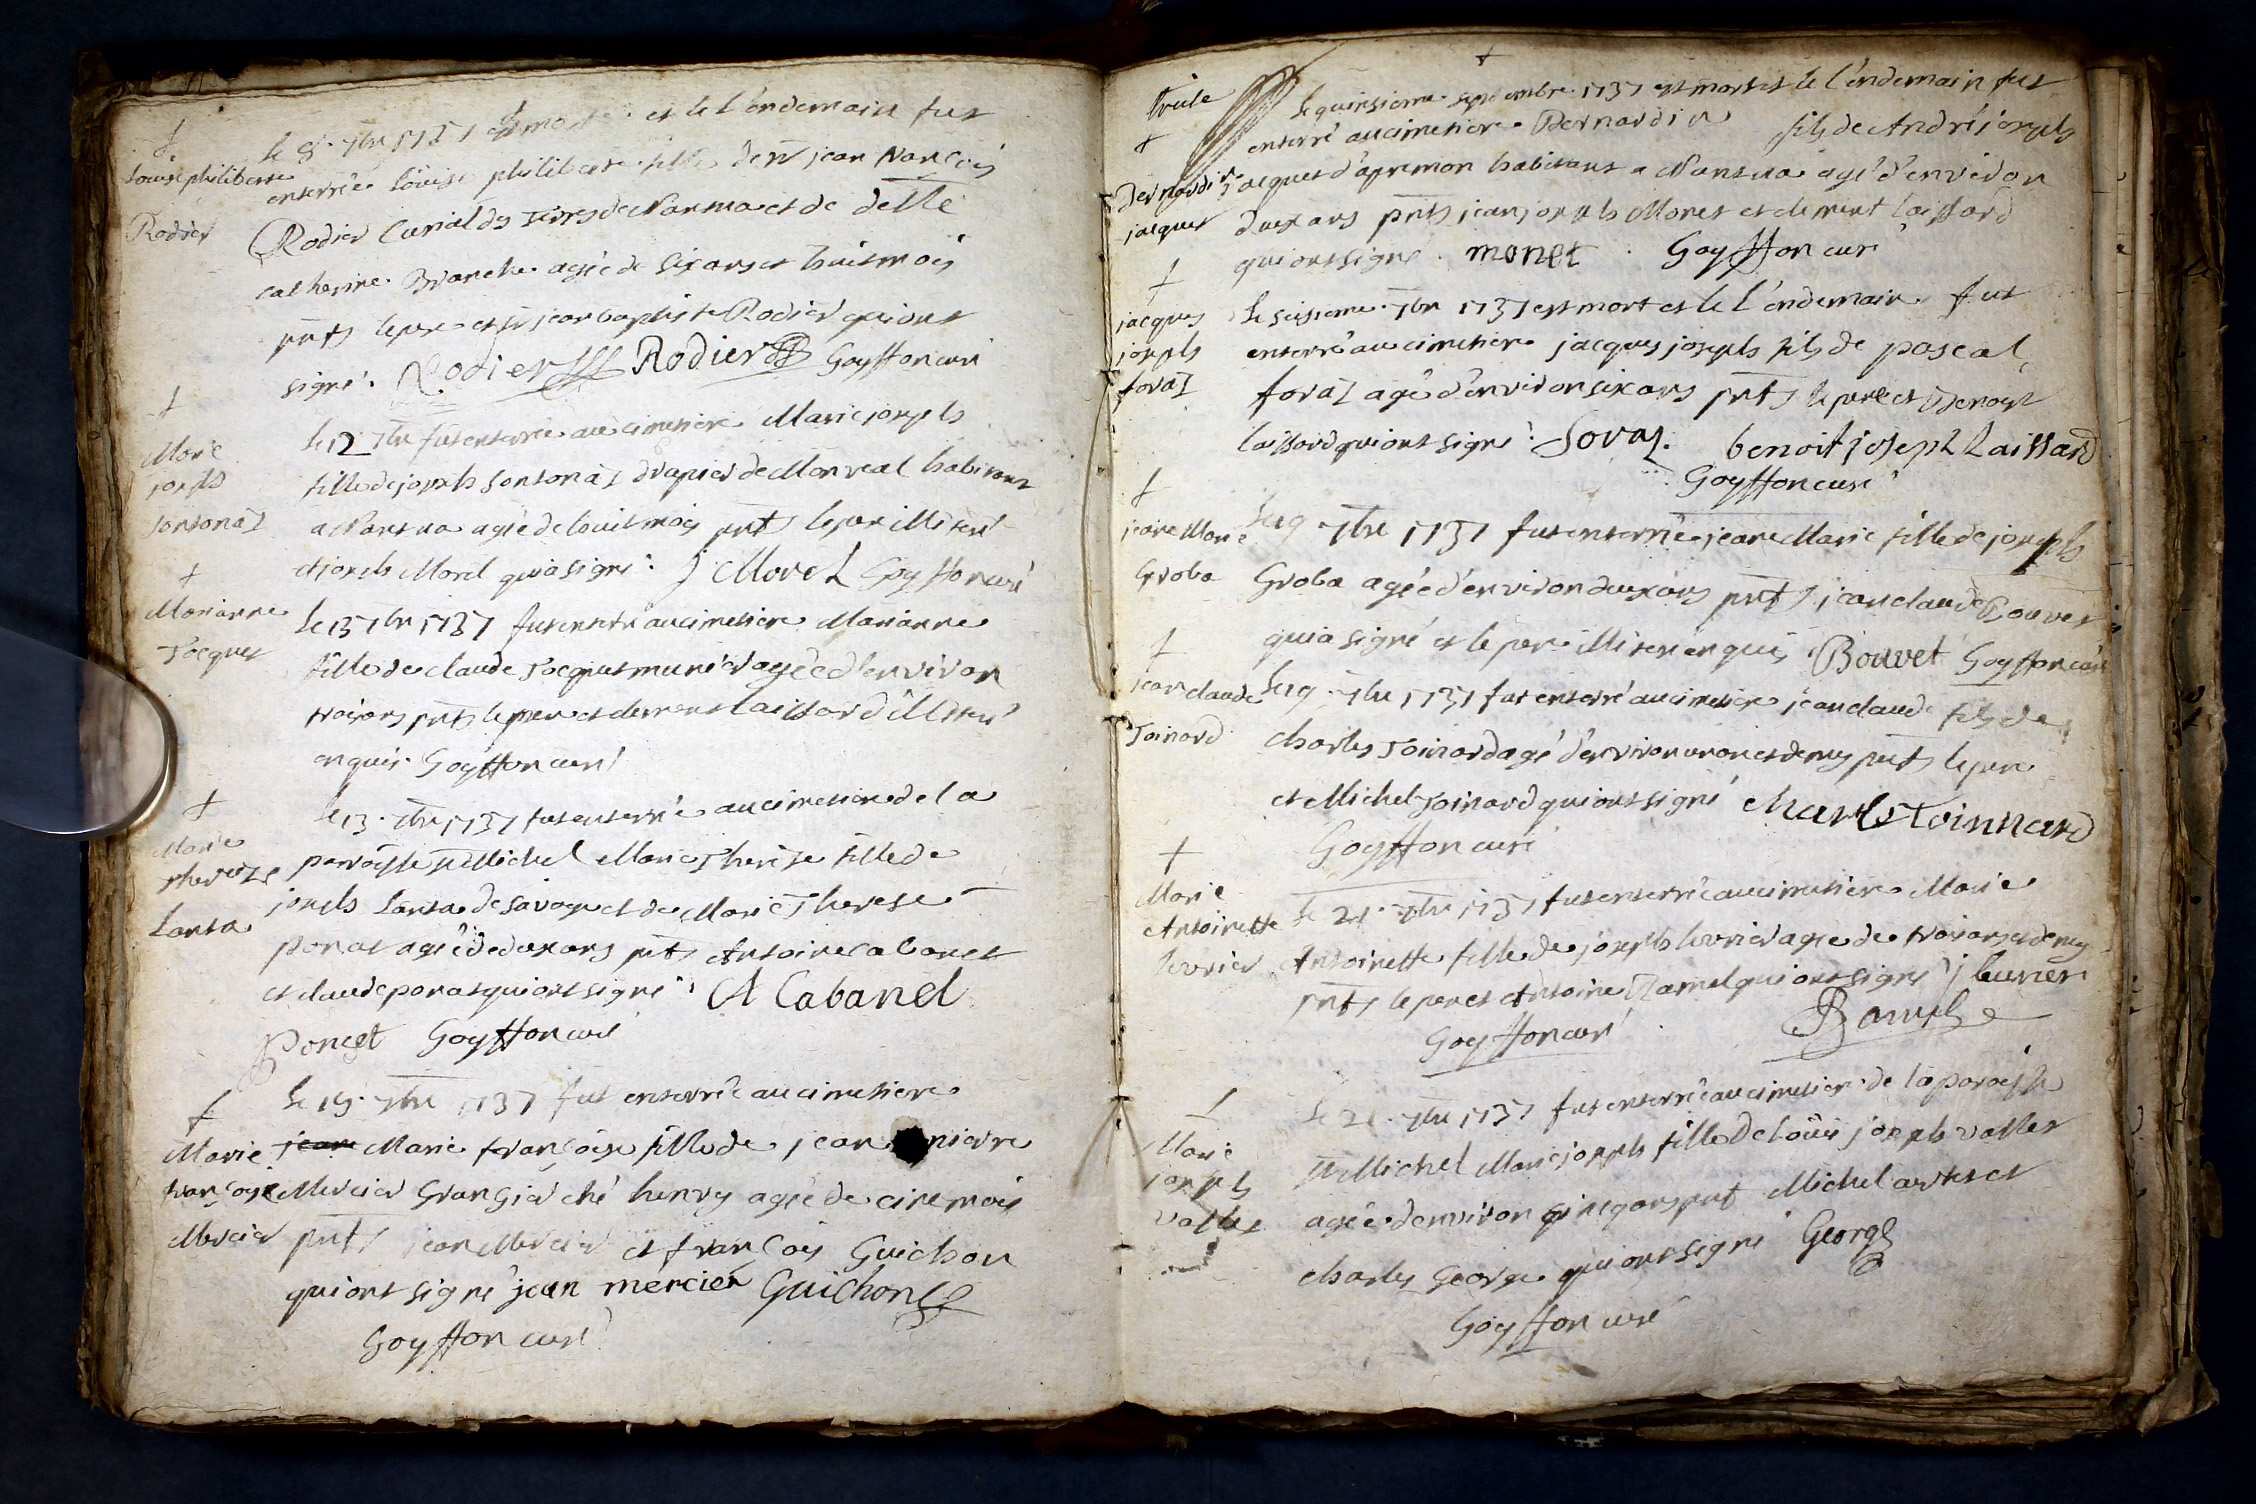 †
Louise philiberte
Rodier
le 8. 7bre 1737 est morte et le l'endemain fut
enterrée Louise philiberte fille de Sr jean François
Rodier Curial des terres de Nantua et de delle
catherine Branche agée de six ans et huit mois
pnts le pere et Sr jean baptiste Rodier qui ont
signé. Rodier Rodier Goyffon curé
†
Marie
joseph
sontonaz
le 12 7bre fut enterrée au cimetiere Marie joseph
fille de joseph sontonaz drapier de Monreal habitant
a Nantua agée de huit mois pnts le pere illiteré
et joseph Morel qui a signé. J Morel Goyffon curé
†
Marianne
Jacquet
le 13 7bre 1737 fut enterré au cimetiere Marianne
fille de claude Jacquet munier agée d'environ
trois ans pnts le pere et clement Laissard illiteré
enquis. Goyffon curé
†
Marie
therèze
Lanta
le 13. 7bre 1737 fut enterrée au cimetiere de la
paroisse St Michel Marie Therèse fille de
joseph Lanta de savoye et de Marie Therese
ponat agée de deux ans pnts Antoine Cabanet
et claude ponat qui ont signé. A Cabanel
Poncet Goyffon curé
†
Marie
françoise
Mercier
le 19. 7bre 1737 fut enterrée au cimetiere
jeane Marie françoise fille de jean pierre
Mercier Grangier ché henry agée de cinc mois
pnts jean Mercier et françois Guichon
qui ont signé jean mercier Guichon
Goyffon curé
†
truite
†
Bernardin
jacquet
le quinsieme septembre 1737 est mort et le l'endemain fut
enterré au cimetiere Bernardin fils de André joseph
jacquet d'apremon habitant a Nantua agé d'environ
deux ans pnts jean joseph Monet et clement Laissard
qui ont signé. monet. Goyffon curé
†
jacques
joseph
foraz
le seisieme 7bre 1737 est mort et le l'endemain fut
enterré au cimetiere jacques joseph fils de pascal
foraz agé d'environ six ans pnts le pere et Benoyt
laissard qui ont signé. foraz. benoit joseph Laissard
Goyffon curé
†
jeane Marie
Groba
le 19 7bre 1737 fut enterrée jeane Marie fille de joseph
Groba agée d'environ deux ans pnts jean claude Bouvet
qui a signé et le pere illiteré enquis Bouvet Goyffon curé
†
jean claude
Toinard
le 19 7bre 1737 fut enterré au cimetiere jean claude fils de
charles Toinard agé d'environ un an et demy pnts le pere
et Michel Toinard qui ont signé Charle Toinnard
Goyffon curé
†
Marie
Antoinette
levrier
le 21. 7bre 1737 fut enterrée au cimetiere Marie
Antoinette fille de joseph levrier agée de trois ans et demy
pnts le pere et Antoine Ramel qui ont signé j leurier
Goyffon curé Ramel
†
Marie
joseph
vallet
le 21. 7bre 1737 fut enterrée au cimetiere de la paroisse
St Michel Marie joseph fille de Loüis joseph vallet
agée d'environ cinq ans pnt Michel artet et
charles George qui ont signé George
Goyffon curé